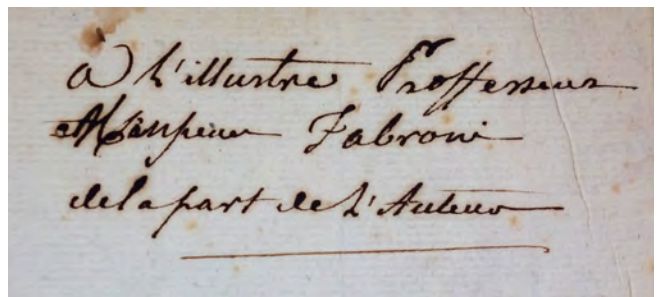 à l'illustre Proffesseur
Monsieur Fabroni
de la part de L'Auteur